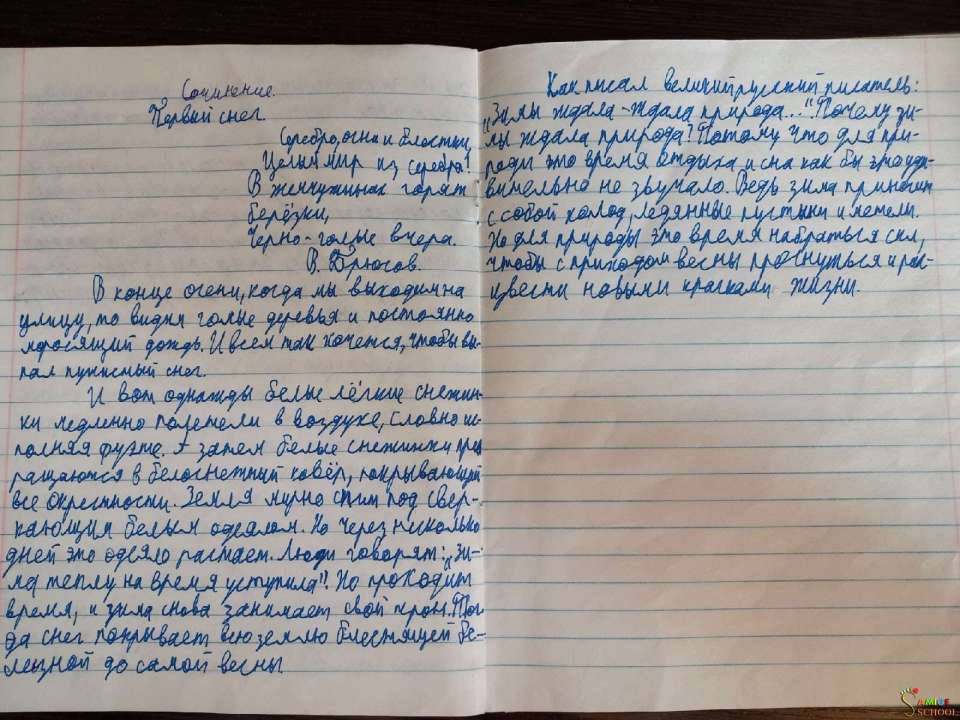 Сочинение.
Первый снег.
Серебро, огни и блёстки,
Целый мир из серебра!
В жемчужинах горят
берёзки,
Черно-голые вчера.
В. Брюсов.
В конце осени, когда мы выходим на
улицу, то видим голые деревья и постоянно
моросящий дождь. И всем так хочется, чтобы вы-
пал пушистый снег.
И вот однажды белые лёгкие снежин-
ки медленно полетели в воздухе, словно ис-
полняя фуэте. А затем белые снежинки прев
ращаются в белоснежный ковёр, покрывающий
все окрестности. Земля мирно спит под свер-
кающим белым одеялом. Но через несколько
дней это одеяло растает. Люди говорят: „Зи-
ма теплу на время уступила". Но проходит
время, и зима снова занимает свой трон. Тог
да снег покрывает всю землю блестящей бе-
лизной до самой весны
Как писал великий русский писатель:
„Зимы ждала-ждала природа..." Почему зи-
мы ждала природа? Потому что для при-
роды это время отдыха и сна как бы это уди-
вительно не звучало. Ведь зима приносит
с собой холод, ледянные пустыни и метели.
Но для природы это время набраться сил,
чтобы с приходом весны проснуться и рас-
цвести новыми красками жизни.
AMICE
SCHOOL